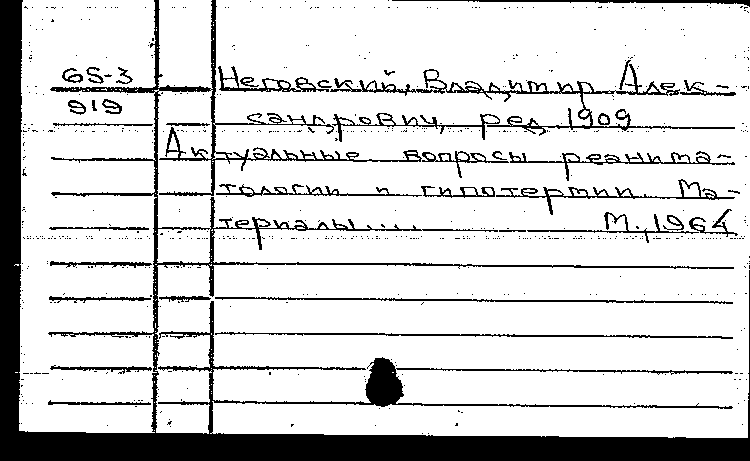 65-3
919
Неговский, Владимир Алек-
сандрович, ред. 1909
Актуальные вопросы реанима-
тологии и гипотермии. Ма-
териалы.... М., 1964